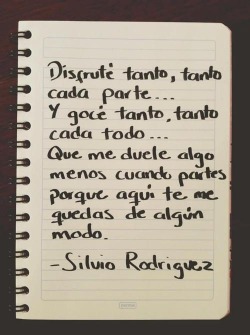 Disfruté tanto, tanto
cada parte...
Y gocé tanto, tanto
cada todo...
Que me duele algo
menos cuando partes
porque aquí te me
quedas de algún
modo.
-Silvio Rodriguez